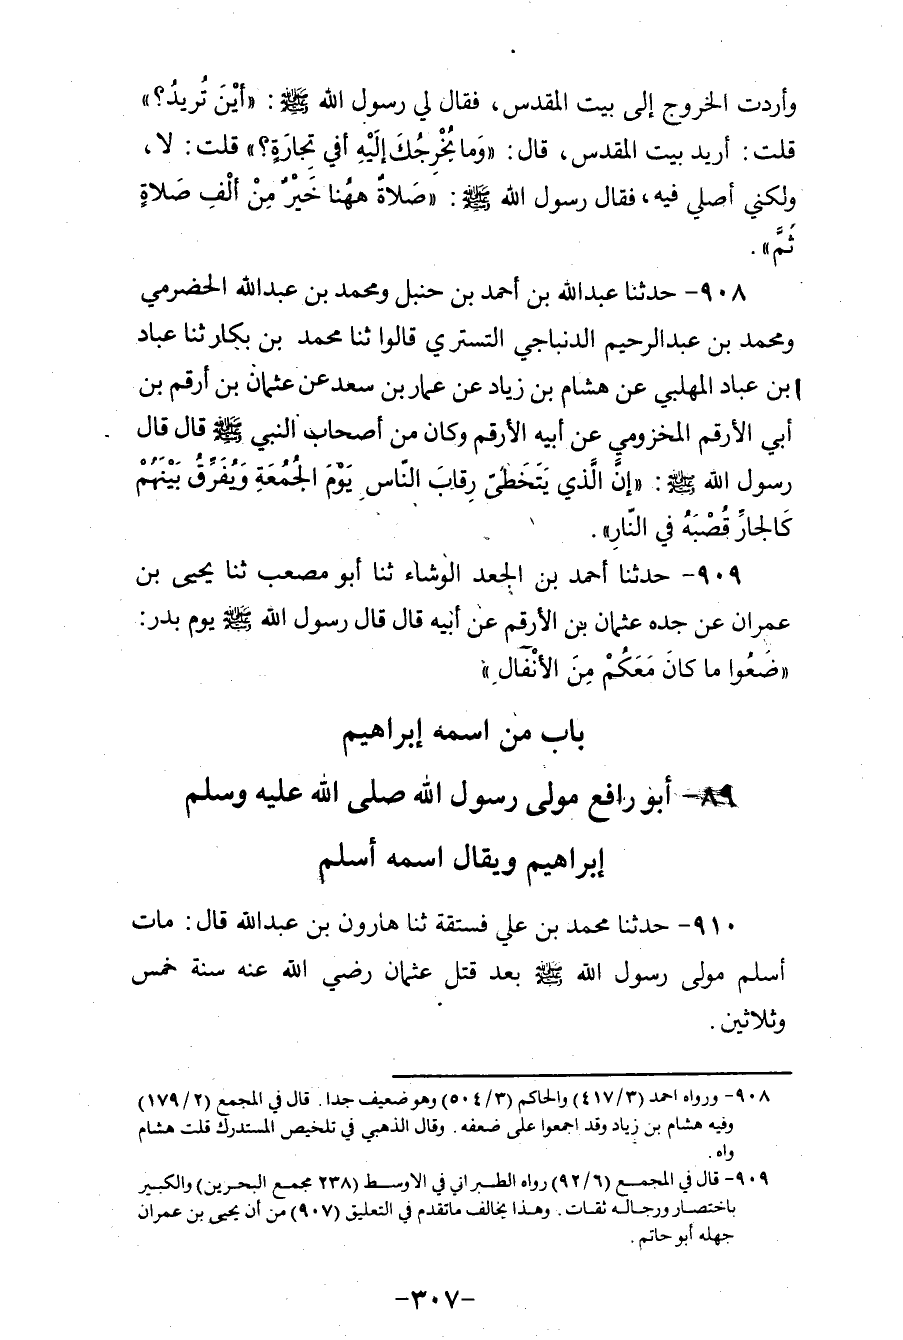 وأردت الخروج إلى بيت المقدس، فقال لي رسول الله ﷺ: «أَيْنَ تُرِيدُ؟»
قلت: أريد بيت المقدس، قال: «وَما يُخْرِجُكَ إِلَيْهِ أفي تِجارَةٍ؟» قلت: لا،
ولكني أصلي فيه، فقال رسول الله ﷺ: «صَلاةٌ ههُنا خَيْرٌ مِنْ ألْفِ صَلاةٍ
ثَمَّ».
٩٠٨- حدثنا عبدالله بن أحمد بن حنبل ومحمد بن عبدالله الحضرمي
ومحمد بن عبدالرحيم الدنباجي التستري قالوا ثنا محمد بن بكار ثنا عباد
ابن عباد المهلبي عن هشام بن زياد عن عمار بن سعد عن عثمان بن أرقم بن
أبي الأرقم المخزومي عن أبيه الأرقم وكان من أصحاب النبي ﷺ قال قال
رسول الله ﷺ: «إنَّ الَّذي يَتَخَطىّ رِقابَ النّاسِ يَوْمَ الجُمُعَةِ وَيُفَرِّقُ بَيْنَهُمْ
كَالجارِّ قُصْبَهُ في النّارِ».
٩٠٩- حدثنا أحمد بن الجعد الوشاء ثنا أبو مصعب ثنا يحيى بن
عمران عن جده عثمان بن الأرقم عن أبيه قال قال رسول الله ﷺ يوم بدر:
«ضَعُوا ما كانَ مَعَكُمْ مِنَ الأنْفَالِ»
باب من اسمه إبراهيم
٨٩- أبو رافع مولى رسول الله صلى الله عليه وسلم
إبراهيم ويقال اسمه أسلم
٩١٠- حدثنا محمد بن علي فستقة ثنا هارون بن عبدالله قال: مات
أسلم مولى رسول الله ﷺ بعد قتل عثمان رضي الله عنه سنة خمس
وثلاثين.
٩٠٨- ورواه احمد (٤١٧/٣) والحاكم (٥٠٤/٣) وهو ضعيف جدا. قال في المجمع (١٧٩/٢)
وفيه هشام بن زياد وقد اجمعوا على ضعفه. وقال الذهبي في تلخيص المستدرك قلت هشام
واه.
٩٠٩- قال في المجمع (٩٢/٦) رواه الطبراني في الاوسط (٢٣٨ مجمع البحرين) والكبير
باختصار ورجاله ثقات. وهذا يخالف ماتقدم في التعليق (٩٠٧) من أن يحيى بن عمران
جهله أبو حاتم.
-٣٠٧-